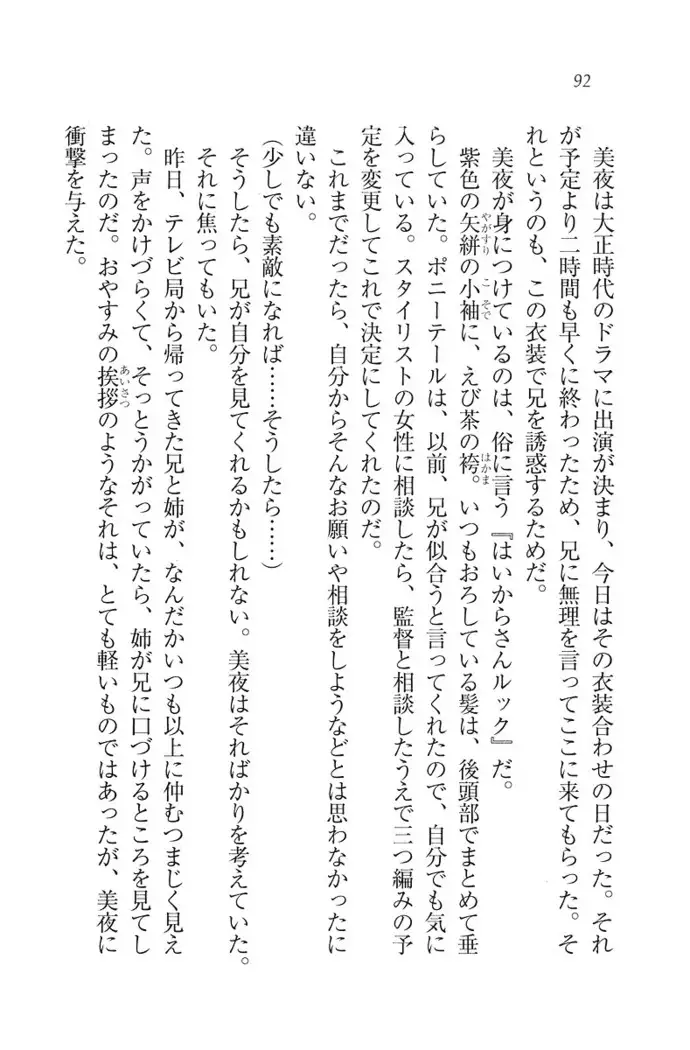 92
美夜は大正時代のドラマに出演が決まり、今日はその衣装合わせの日だった。それ
が予定より二時間も早くに終わったため、兄に無理を言ってここに来てもらった。そ
れというのも、この衣装で兄を誘惑するためだ。
美夜が身につけているのは、俗に言う『はいからさんルック』だ。
紫色の矢絣の小袖に、えび茶の袴。いつもおろしている髪は、後頭部でまとめて垂
らしていた。ポニーテールは、以前、兄が似合うと言ってくれたので、自分でも気に
入っている。スタイリストの女性に相談したら、監督と相談したうえで三つ編みの予
定を変更してこれで決定にしてくれたのだ。
これまでだったら、自分からそんなお願いや相談をしようなどとは思わなかったに
違いない。
（少しでも素敵になれば……そうしたら……）
そうしたら、兄が自分を見てくれるかもしれない。美夜はそればかりを考えていた。
それに焦ってもいた。
昨日、テレビ局から帰ってきた兄と姉が、なんだかいつも以上に仲むつまじく見え
た。声をかけづらくて、そっとうかがっていたら、姉が兄に口づけるところを見てし
まったのだ。おやすみの挨拶のようなそれは、とても軽いものではあったが、美夜に
衝撃を与えた。
やがすり
こそで
はかま
あいさつ